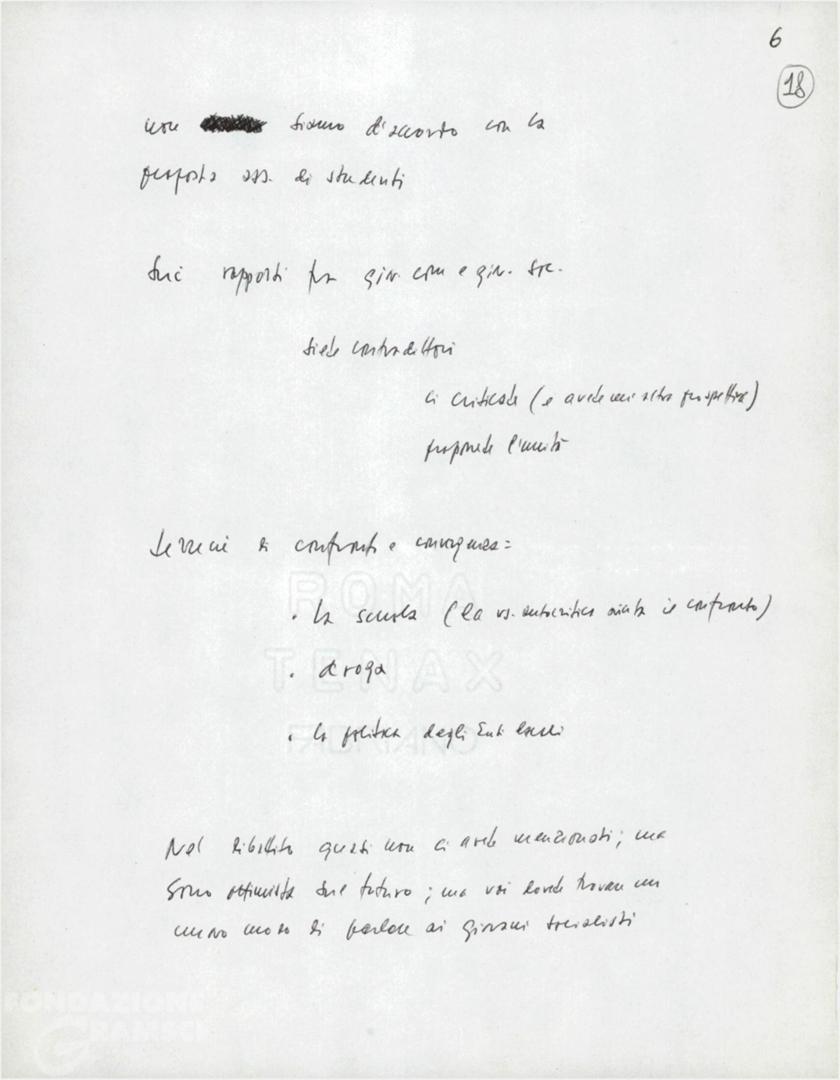 6
18
non siamo d'accordo con la
proposta ass. di studenti
Sui rapporti fra giov. com e giov. soc.
siete contraddittori
ci criticate (e avete un'altra prospettiva)
proponete l'unità
Terreni di confronti e convergenza =
• la scuola (la vs. autocritica aiuta il confronto)
• droga
• la politica degli Enti locali
Nel dibattito quasi non ci avete menzionati; ma
sono ottimista sul futuro; ma voi dovete trovare un
nuovo modo di parlare ai giovani socialisti
ROMA
TENAX
FABRIANO
FONDAZIONE
GRAMSCI